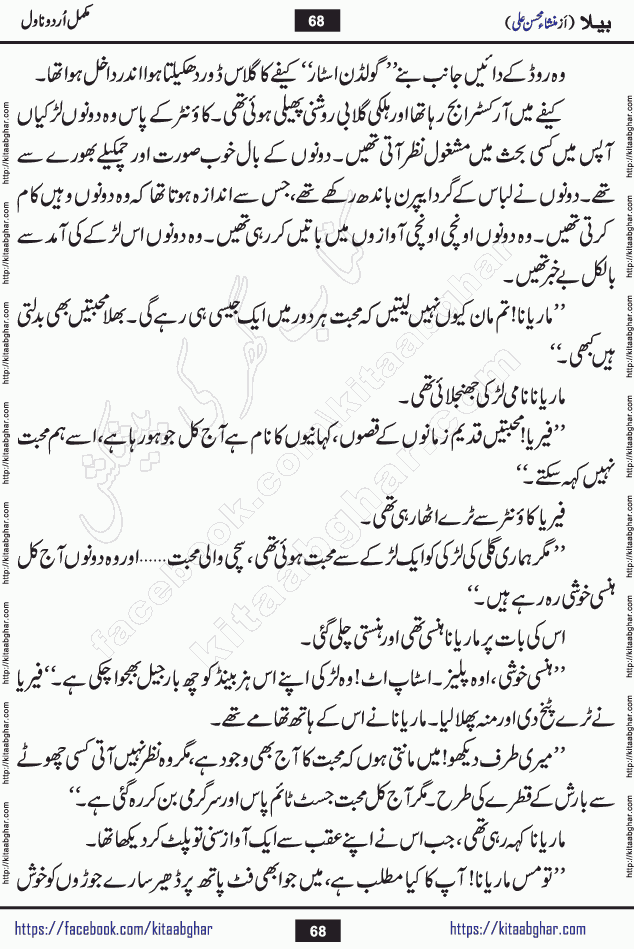 بیلا (از منشاء محسن علی) 68 مکمل اُردو ناول
وہ روڈ کے دائیں جانب بنے ’’گولڈن اسٹار‘‘ کیفے کا گلاس ڈور دھکیلتا ہوا اندر داخل ہوا تھا۔
کیفے میں آرکسٹرا بج رہا تھا اور ہلکی گلابی روشنی پھیلی ہوئی تھی۔ کاؤنٹر کے پاس وہ دونوں لڑکیاں
آپس میں کسی بحث میں مشغول نظر آتی تھیں۔ دونوں کے بال خوب صورت اور چمکیلے بھورے سے
تھے۔ دونوں نے لباس کے گرد ایپرن باندھ رکھے تھے، جس سے اندازہ ہوتا تھا کہ وہ دونوں وہیں کام
کرتی تھیں۔ وہ دونوں اونچی اونچی آوازوں میں باتیں کر رہی تھیں۔ وہ دونوں اس لڑکے کی آمد سے
بالکل بے خبر تھیں۔
’’ماریانا! تم مان کیوں نہیں لیتیں کہ محبت ہر دور میں ایک جیسی ہی رہے گی۔ بھلا محبتیں بھی بدلتی
ہیں کبھی۔‘‘
ماریانا نامی لڑکی جھنجلائی تھی۔
’’فیریا! محبتیں قدیم زمانوں کے قصوں، کہانیوں کا نام ہے آج کل جو ہو رہا ہے، اسے ہم محبت
نہیں کہہ سکتے۔‘‘
فیریا کاؤنٹر سے ٹرے اٹھا رہی تھی۔
’’مگر ہماری گلی کی لڑکی کو ایک لڑکے سے محبت ہوئی تھی، سچی والی محبت......اور وہ دونوں آج کل
ہنسی خوشی رہ رہے ہیں۔‘‘
اس کی بات پر ماریانا ہنسی تھی اور ہنستی چلی گئی۔
’’ہنسی خوشی، اوہ پلیز۔ اسٹاپ اٹ! وہ لڑکی اپنے اس ہزبینڈ کو چھ بار جیل بھجوا چکی ہے۔‘‘ فیریا
نے ٹرے پٹخ دی اور منہ پھلا لیا۔ ماریانا نے اس کے ہاتھ تھامے تھے۔
’’میری طرف دیکھو! میں مانتی ہوں کہ محبت کا آج بھی وجود ہے، مگر وہ نظر نہیں آتی کسی چھوٹے
سے بارش کے قطرے کی طرح۔ مگر آج کل محبت جسٹ ٹائم پاس اور سرگرمی بن کر رہ گئی ہے۔‘‘
ماریانا کہہ رہی تھی، جب اس نے اپنے عقب سے ایک آواز سنی تو پلٹ کر دیکھا تھا۔
’’تو مس ماریانا! آپ کا کیا مطلب ہے، میں جو ابھی فٹ پاتھ پر ڈھیر سارے جوڑوں کو خوش
https://facebook.com/kitaabghar 68 https://kitaabghar.com
http://kitaabghar.com http://kitaabghar.com http://kitaabghar.com http://kitaabghar.com http://kitaabghar.com http://kitaabghar.com http://kitaabghar.com http://kitaabghar.com
http://kitaabghar.com http://kitaabghar.com http://kitaabghar.com http://kitaabghar.com http://kitaabghar.com http://kitaabghar.com http://kitaabghar.com http://kitaabghar.com
کتاب گھر کی پیشکش
facebook.com/kitaabghar
kitaabghar.com